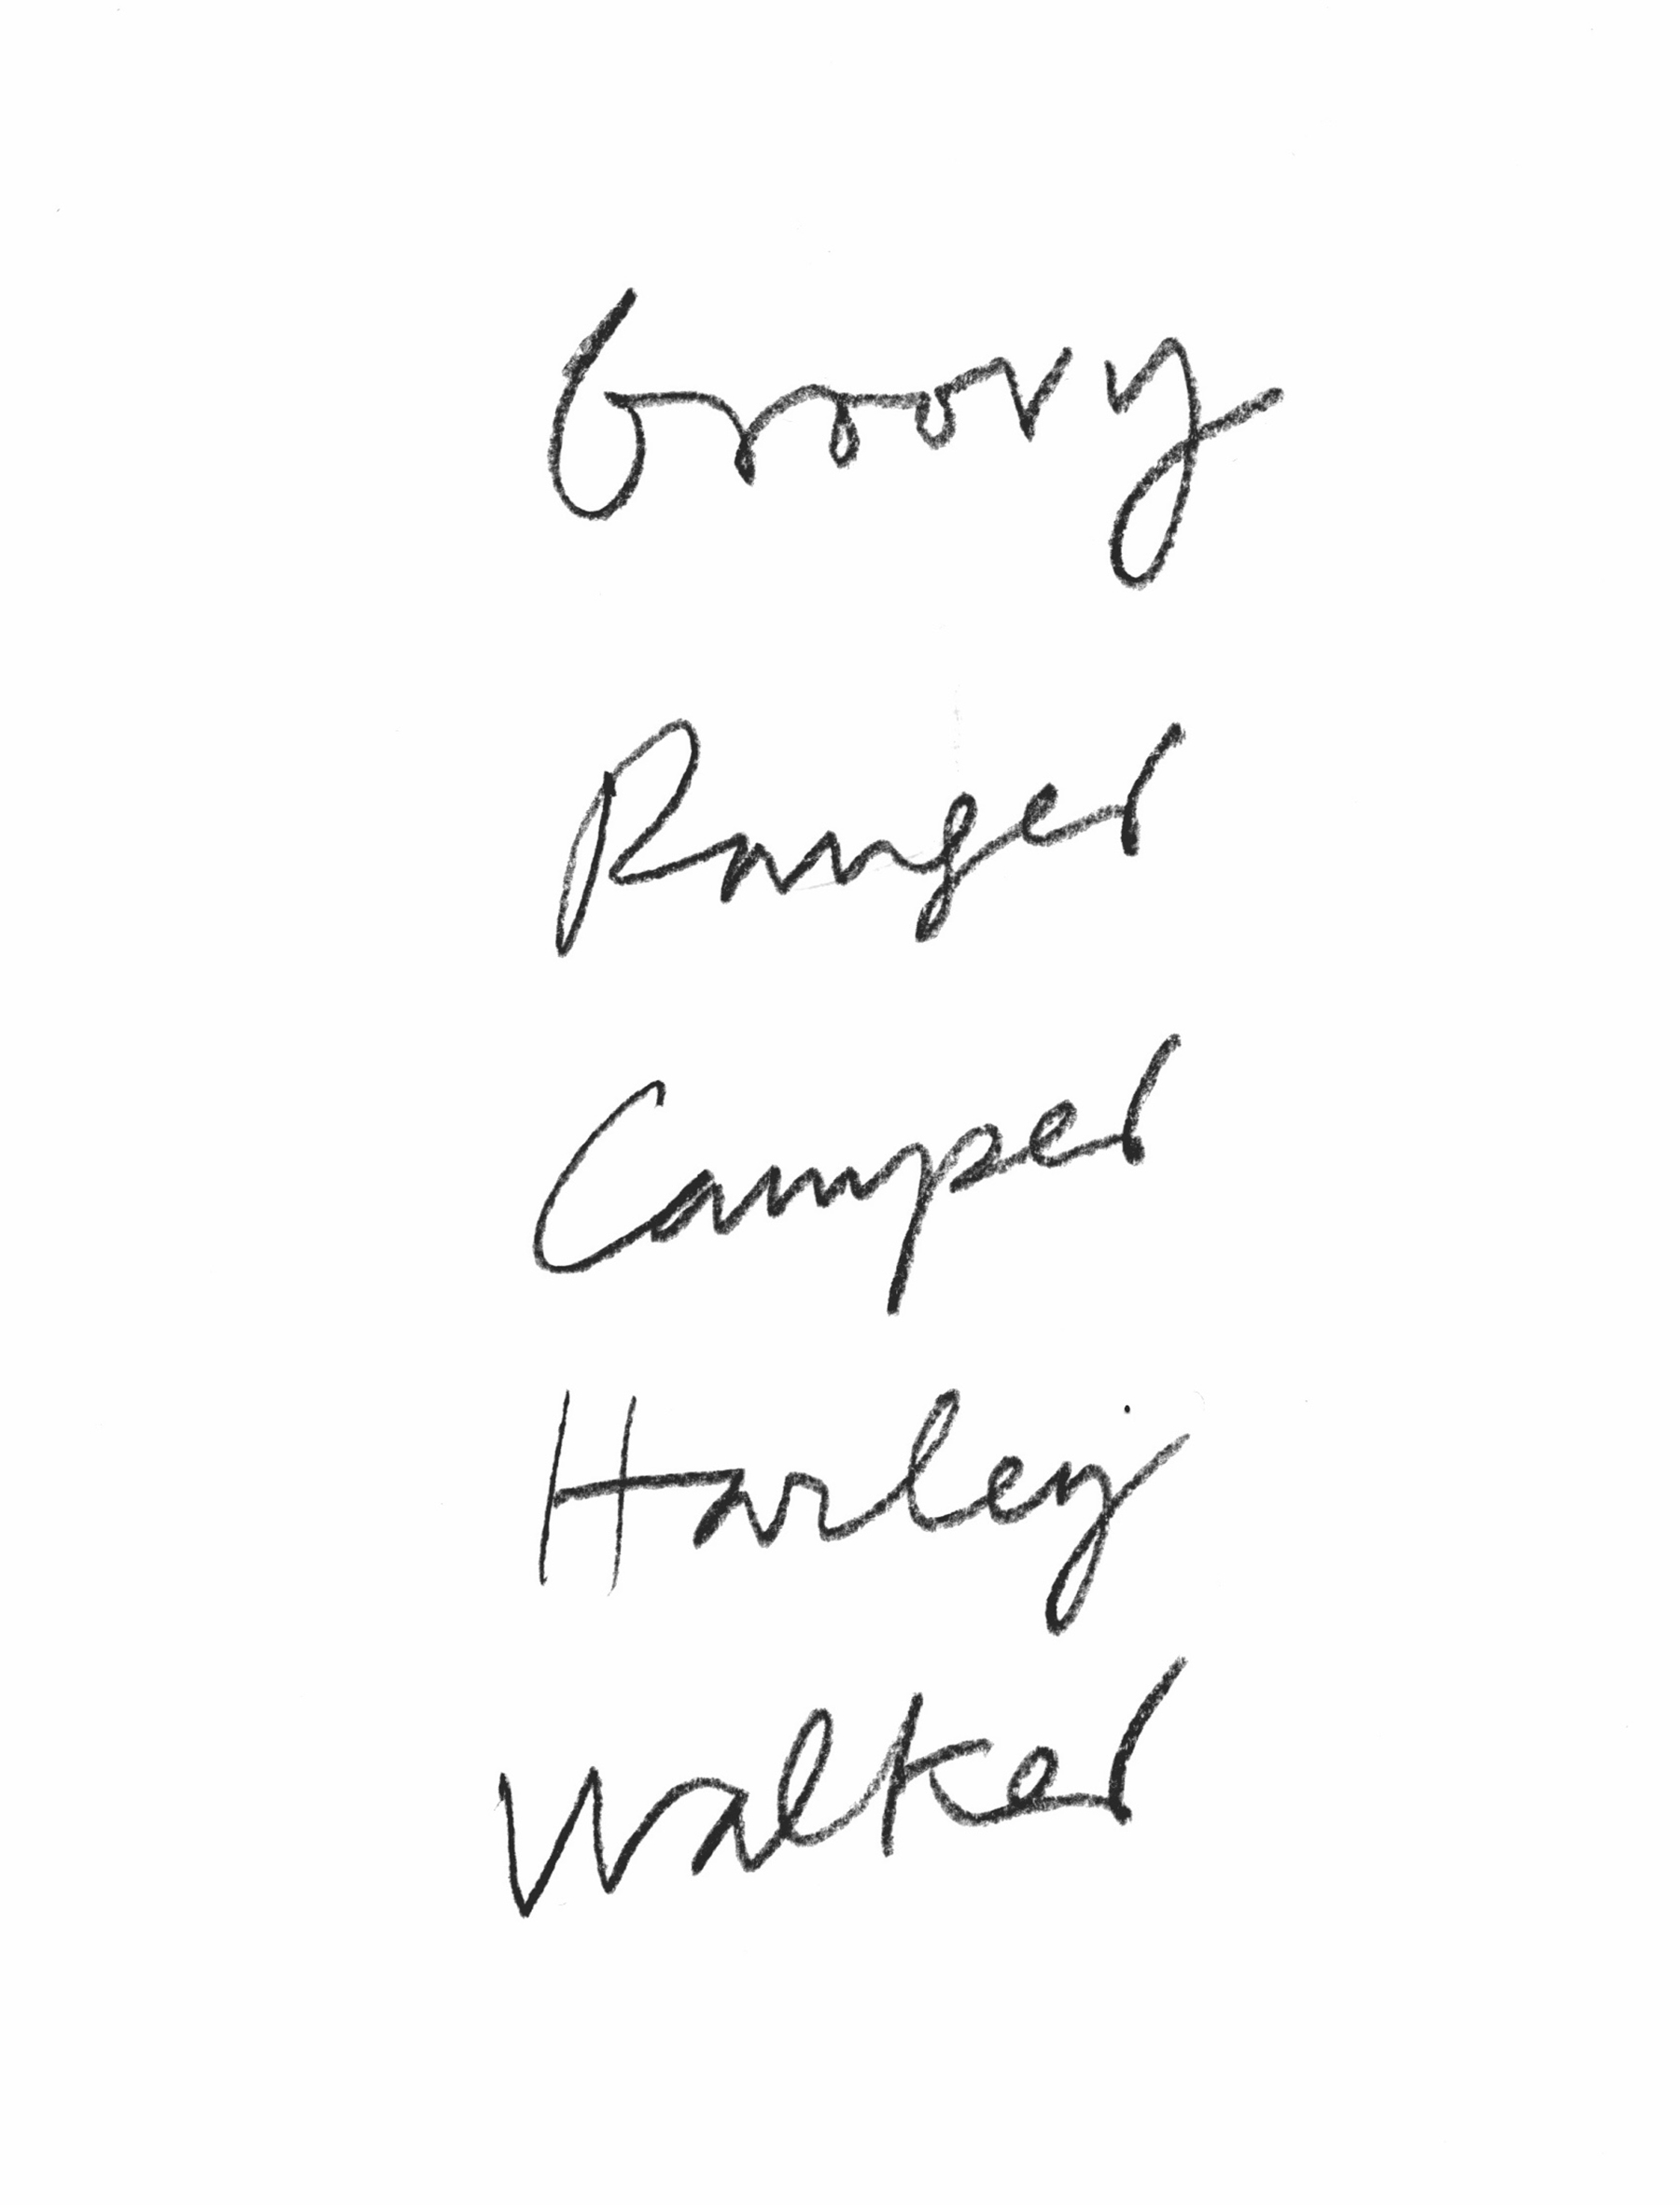 Groovy
Ranger
Camper
Harley
Walker